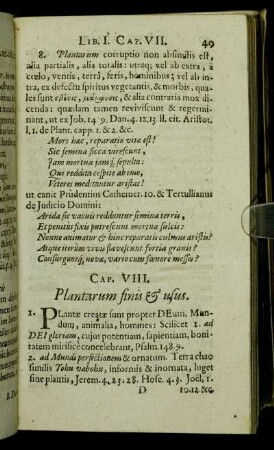 LIB. I. CAP. VII. 49
8. Plantarum corruptio non absimilis est,
alia partialis, alia totalis: utraq; vel ab extra, à
cœlo, ventis, terrâ, feris, hominibus; vel ab in-
tra, ex defectu spiritus vegetantis, & morbis, qua-
les sunt & alia contraria mox di-
cenda: quædam tamen reviviscunt & regermi-
nant, ut ex Job. 14.9. Dan. 4.12.13. ll. cit. Aristot.
l, 1. de Plant. capp. 1. & 2. &c.
Mors hæc, reparatio vitæ est!
Sic semina sicca virescunt,
Jam mortua jamq; sepulta:
Qui reddita cespite ab imo,
Veteres meditantur aristas!
ut canit Prudentius Cathemer. 10. & Tertullianus
de Judicio Domini:
Arida sic vacuis redduntur semina terris,
Et penitus fixis putrescunt mortua sulcis:
Nonne animatur & hinc reparatis culmus aristis?
Atque iterum vivis flavescunt fortia granis?
Consurguntq́, novæ, vario cum fœnore messes?
CAP. VIII.
Plantarum finis & usus.
1. PLantæ creatæ sunt propter DEum, Mun-
dum, animalia, homines: Scilicet 1. ad
DEI gloriam, cujus potentiam, sapientiam, boni-
tatem mirificè concelebrant, Psalm. 148.9.
2. ad Mundi perfectionem & ornatum. Terra chao
similis Tohu vabohu, informis & inornata, luget
sine plantis, Jerem. 4. 23. 28. Hose. 4. 3. Joël, 1.
D 10.12 &c.